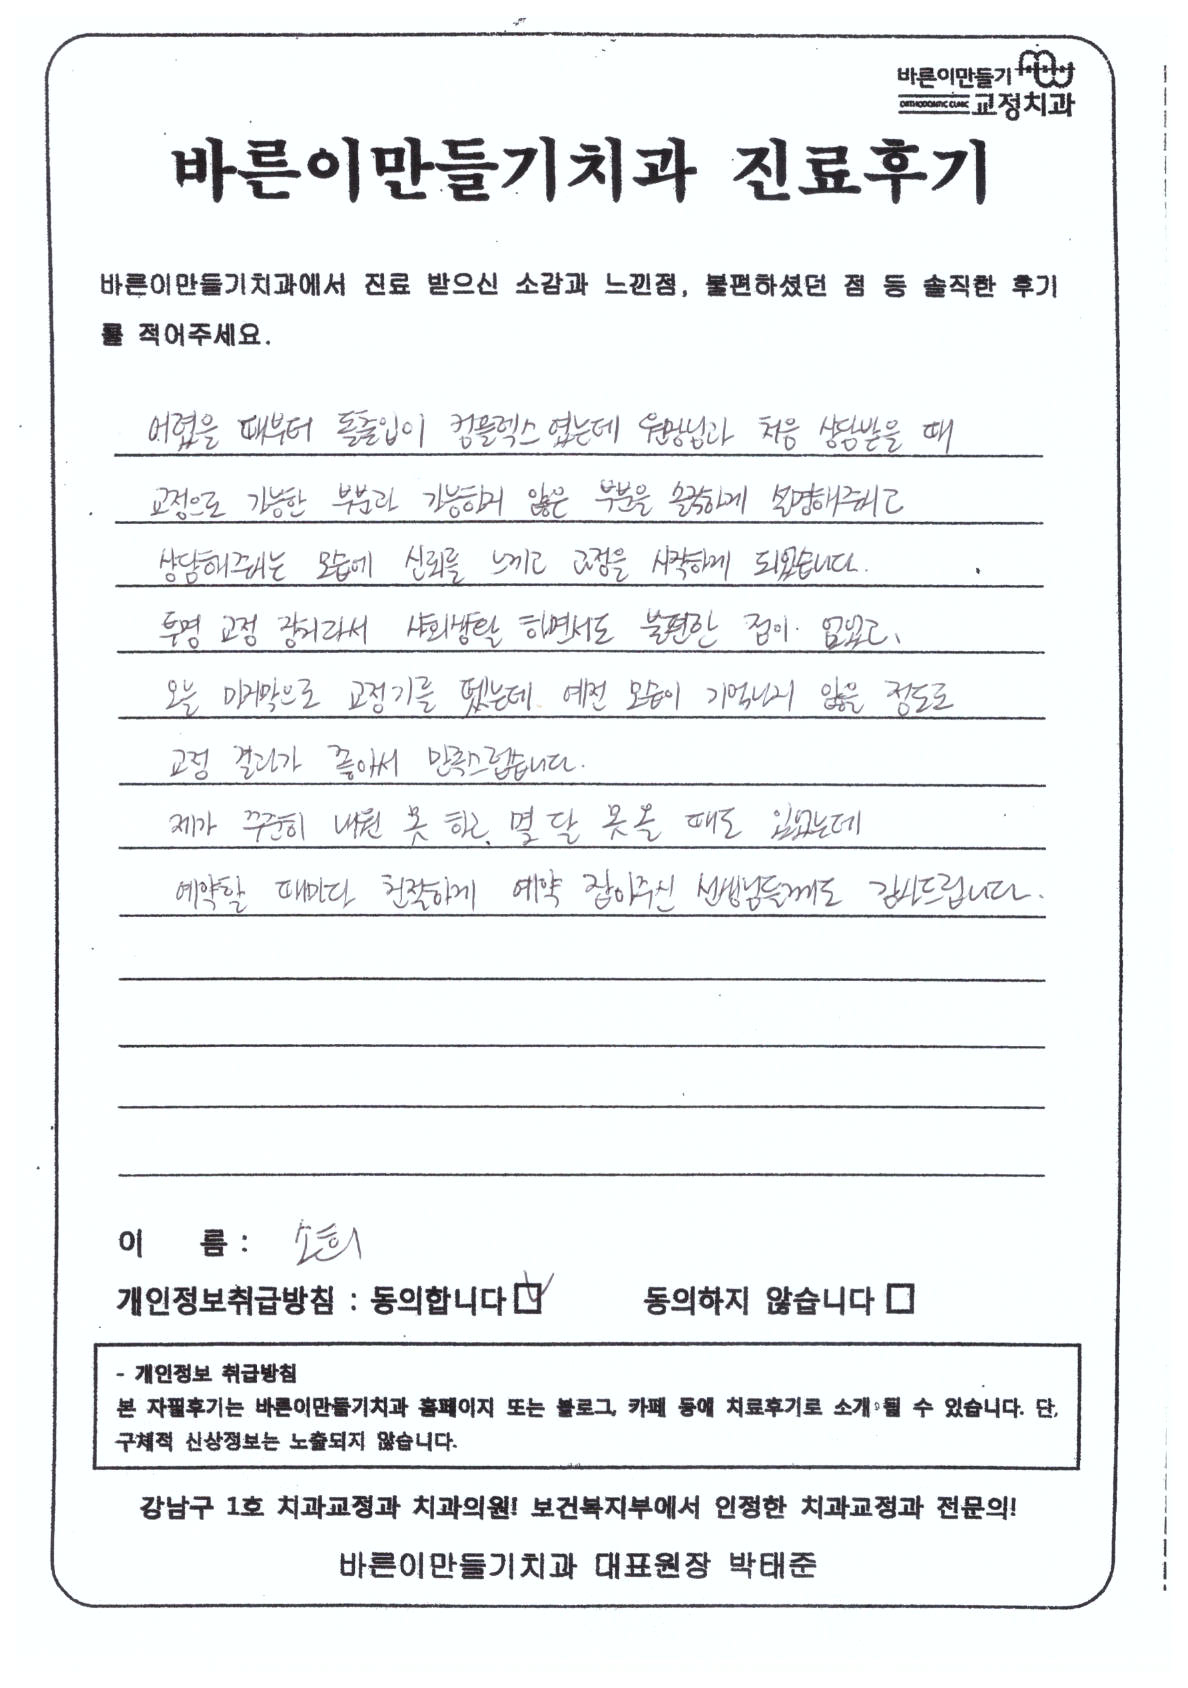 바른이만들기
ORTHODONTIC CLINIC 교정치과
바른이만들기치과 진료후기
바른이만들기치과에서 진료 받으신 소감과 느낀점, 불편하셨던 점 등 솔직한 후기
를 적어주세요.
어렸을 때부터 돌출입이 컴플렉스였는데 원장님과 처음 상담받을 때
교정으로 가능한 부분과 가능하지 않은 부분을 솔직하게 설명해주시고
상담해주시는 모습에 신뢰를 느끼고 교정을 시작하게 되었습니다.
투명 교정 장치라서 사회생활 하면서도 불편한 점이 없었고,
오늘 마지막으로 교정기를 뗐는데 예전 모습이 기억나지 않을 정도로
교정 결과가 좋아서 만족스럽습니다.
제가 꾸준히 내원 못 하고, 몇 달 못 올 때도 있었는데
예약할 때마다 친절하게 예약 잡아주신 선생님들께도 감사드립니다.
이 름 : 소희
개인정보취급방침 : 동의합니다 동의하지 않습니다
- 개인정보 취급방침
본 자필후기는 바른이만들기치과 홈페이지 또는 블로그, 카페 등에 치료후기로 소개 될 수 있습니다. 단,
구체적 신상정보는 노출되지 않습니다.
강남구 1호 치과교정과 치과의원! 보건복지부에서 인정한 치과교정과 전문의!
바른이만들기치과 대표원장 박태준